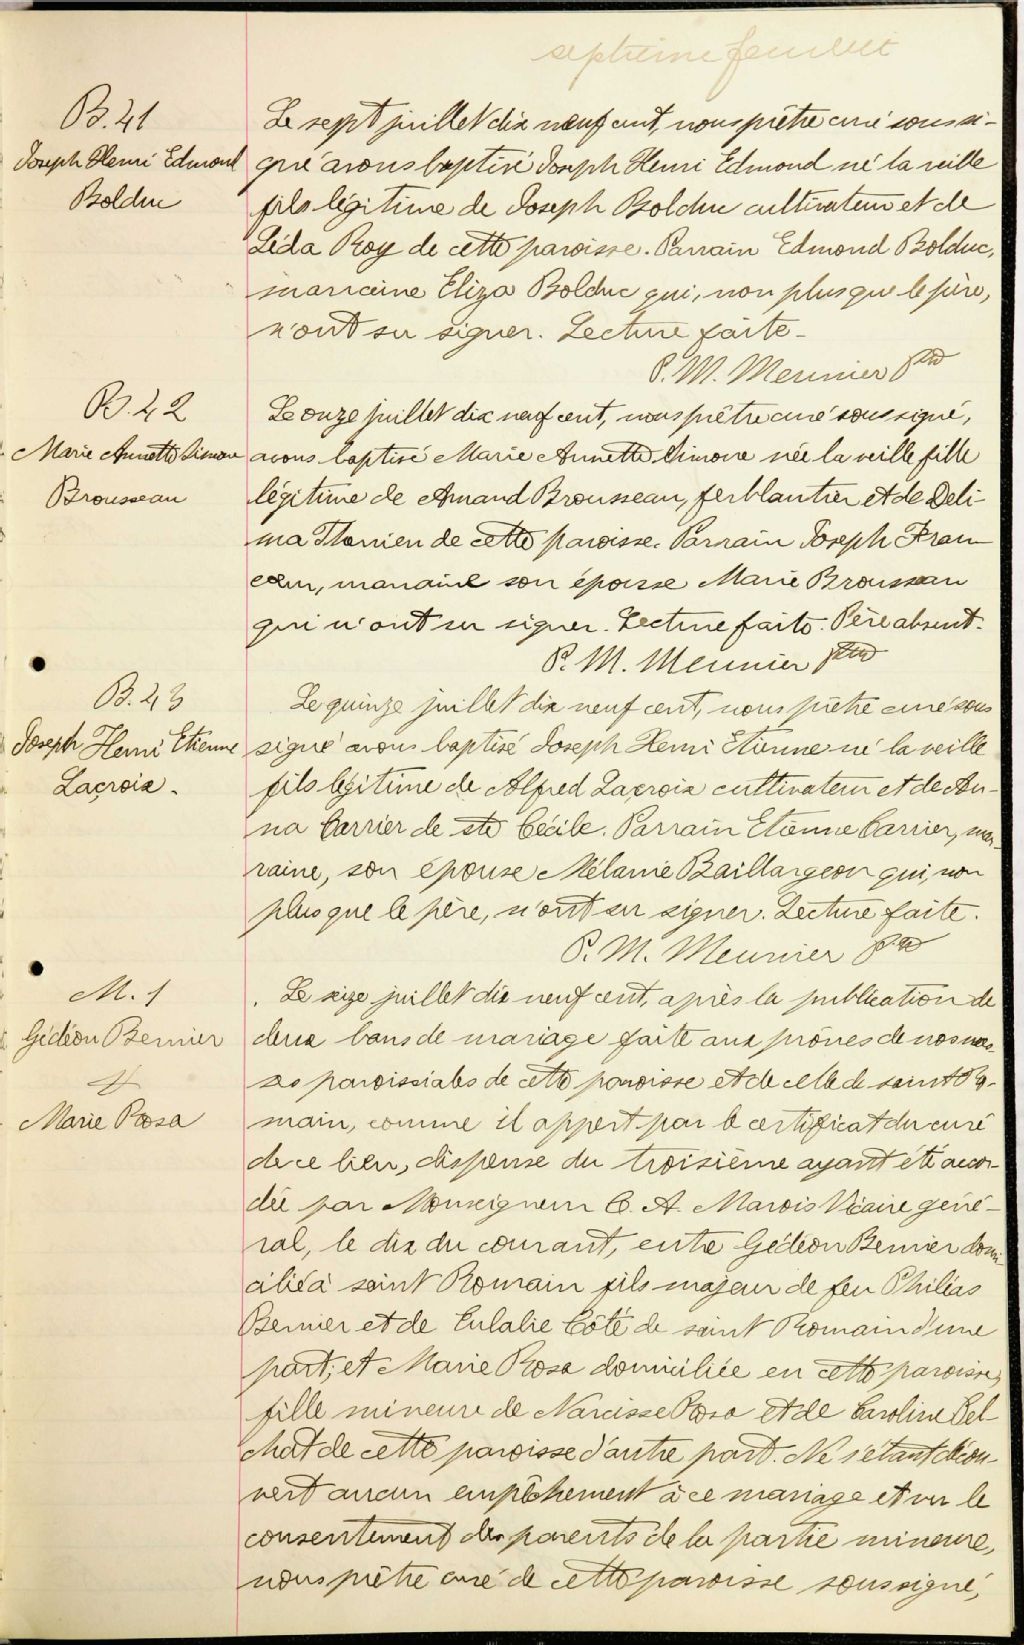 septième feuillet
B. 41
Joseph Henri Edmond
Bolduc
Le sept juillet dix neuf cent, nous prêtre curé soussi-
gné avons baptisé Joseph Henri Edmond né la veille
fils légitime de Joseph Bolduc cultivateur et de
Léda Roy de cette paroisse. Parrain Edmond Bolduc,
marraine Eliza Bolduc qui, non plus que le père,
n'ont su signer. Lecture faite-
P. M. Meunier Ptre
B. 42
Marie Annette Simone
Brousseau
Le onze juillet dix neuf cent, nous prêtre curé soussigné,
avons baptisé Marie Annette Simone née la veille fille
légitime de Amand Brousseau, ferblantier et de Deli-
ma Therrien de cette paroisse. Parrain Joseph Fran-
coeur, marraine son épouse Marie Brousseau
qui n'ont su signer. Lecture faite. Père absent.
P. M. Meunier ptre
B. 43
Joseph Henri Etienne
Lacroix.
Le quinze juillet dix neuf cent, nous prêtre curé sous
signé avons baptisé Joseph Henri Etienne né la veille
fils légitime de Alfred Lacroix cultivateur et de An-
na Carrier de ste Cécile. Parrain Etienne Carrier, mar-
raine, son épouse Mélanie Baillargeon qui, non
plus que le père, n'ont su signer. Lecture faite.
P. M. Meunier Ptre
M. 1
Gédéon Bernier
&
Marie Rosa
Le seize juillet dix neuf cent, après la publication de
deux bans de mariage faite aux prônes de nos mes-
ses paroissiales de cette paroisse et de celle de saint Ro-
main, comme il appert par le certificat du curé
de ce lieu, dispense du troisième ayant été accor-
dée par Monseigneur C. A. Marois Vicaire géné-
ral, le dix du courant, entre Gédéon Bernier domi-
cilié à saint Romain fils majeur de feu Philéas
Bernier et de Eulalie Côté de saint Romain d'une
part; et Marie Rosa domiciliée en cette paroisse,
fille mineure de Narcisse Rosa et de Caroline Bel-
chat de cette paroisse d'autre part. Ne s'étant décou-
vert aucun empêchement à ce mariage et vu le
consentement des parents de la partie mineure,
nous prêtre curé de cette paroisse soussigné,